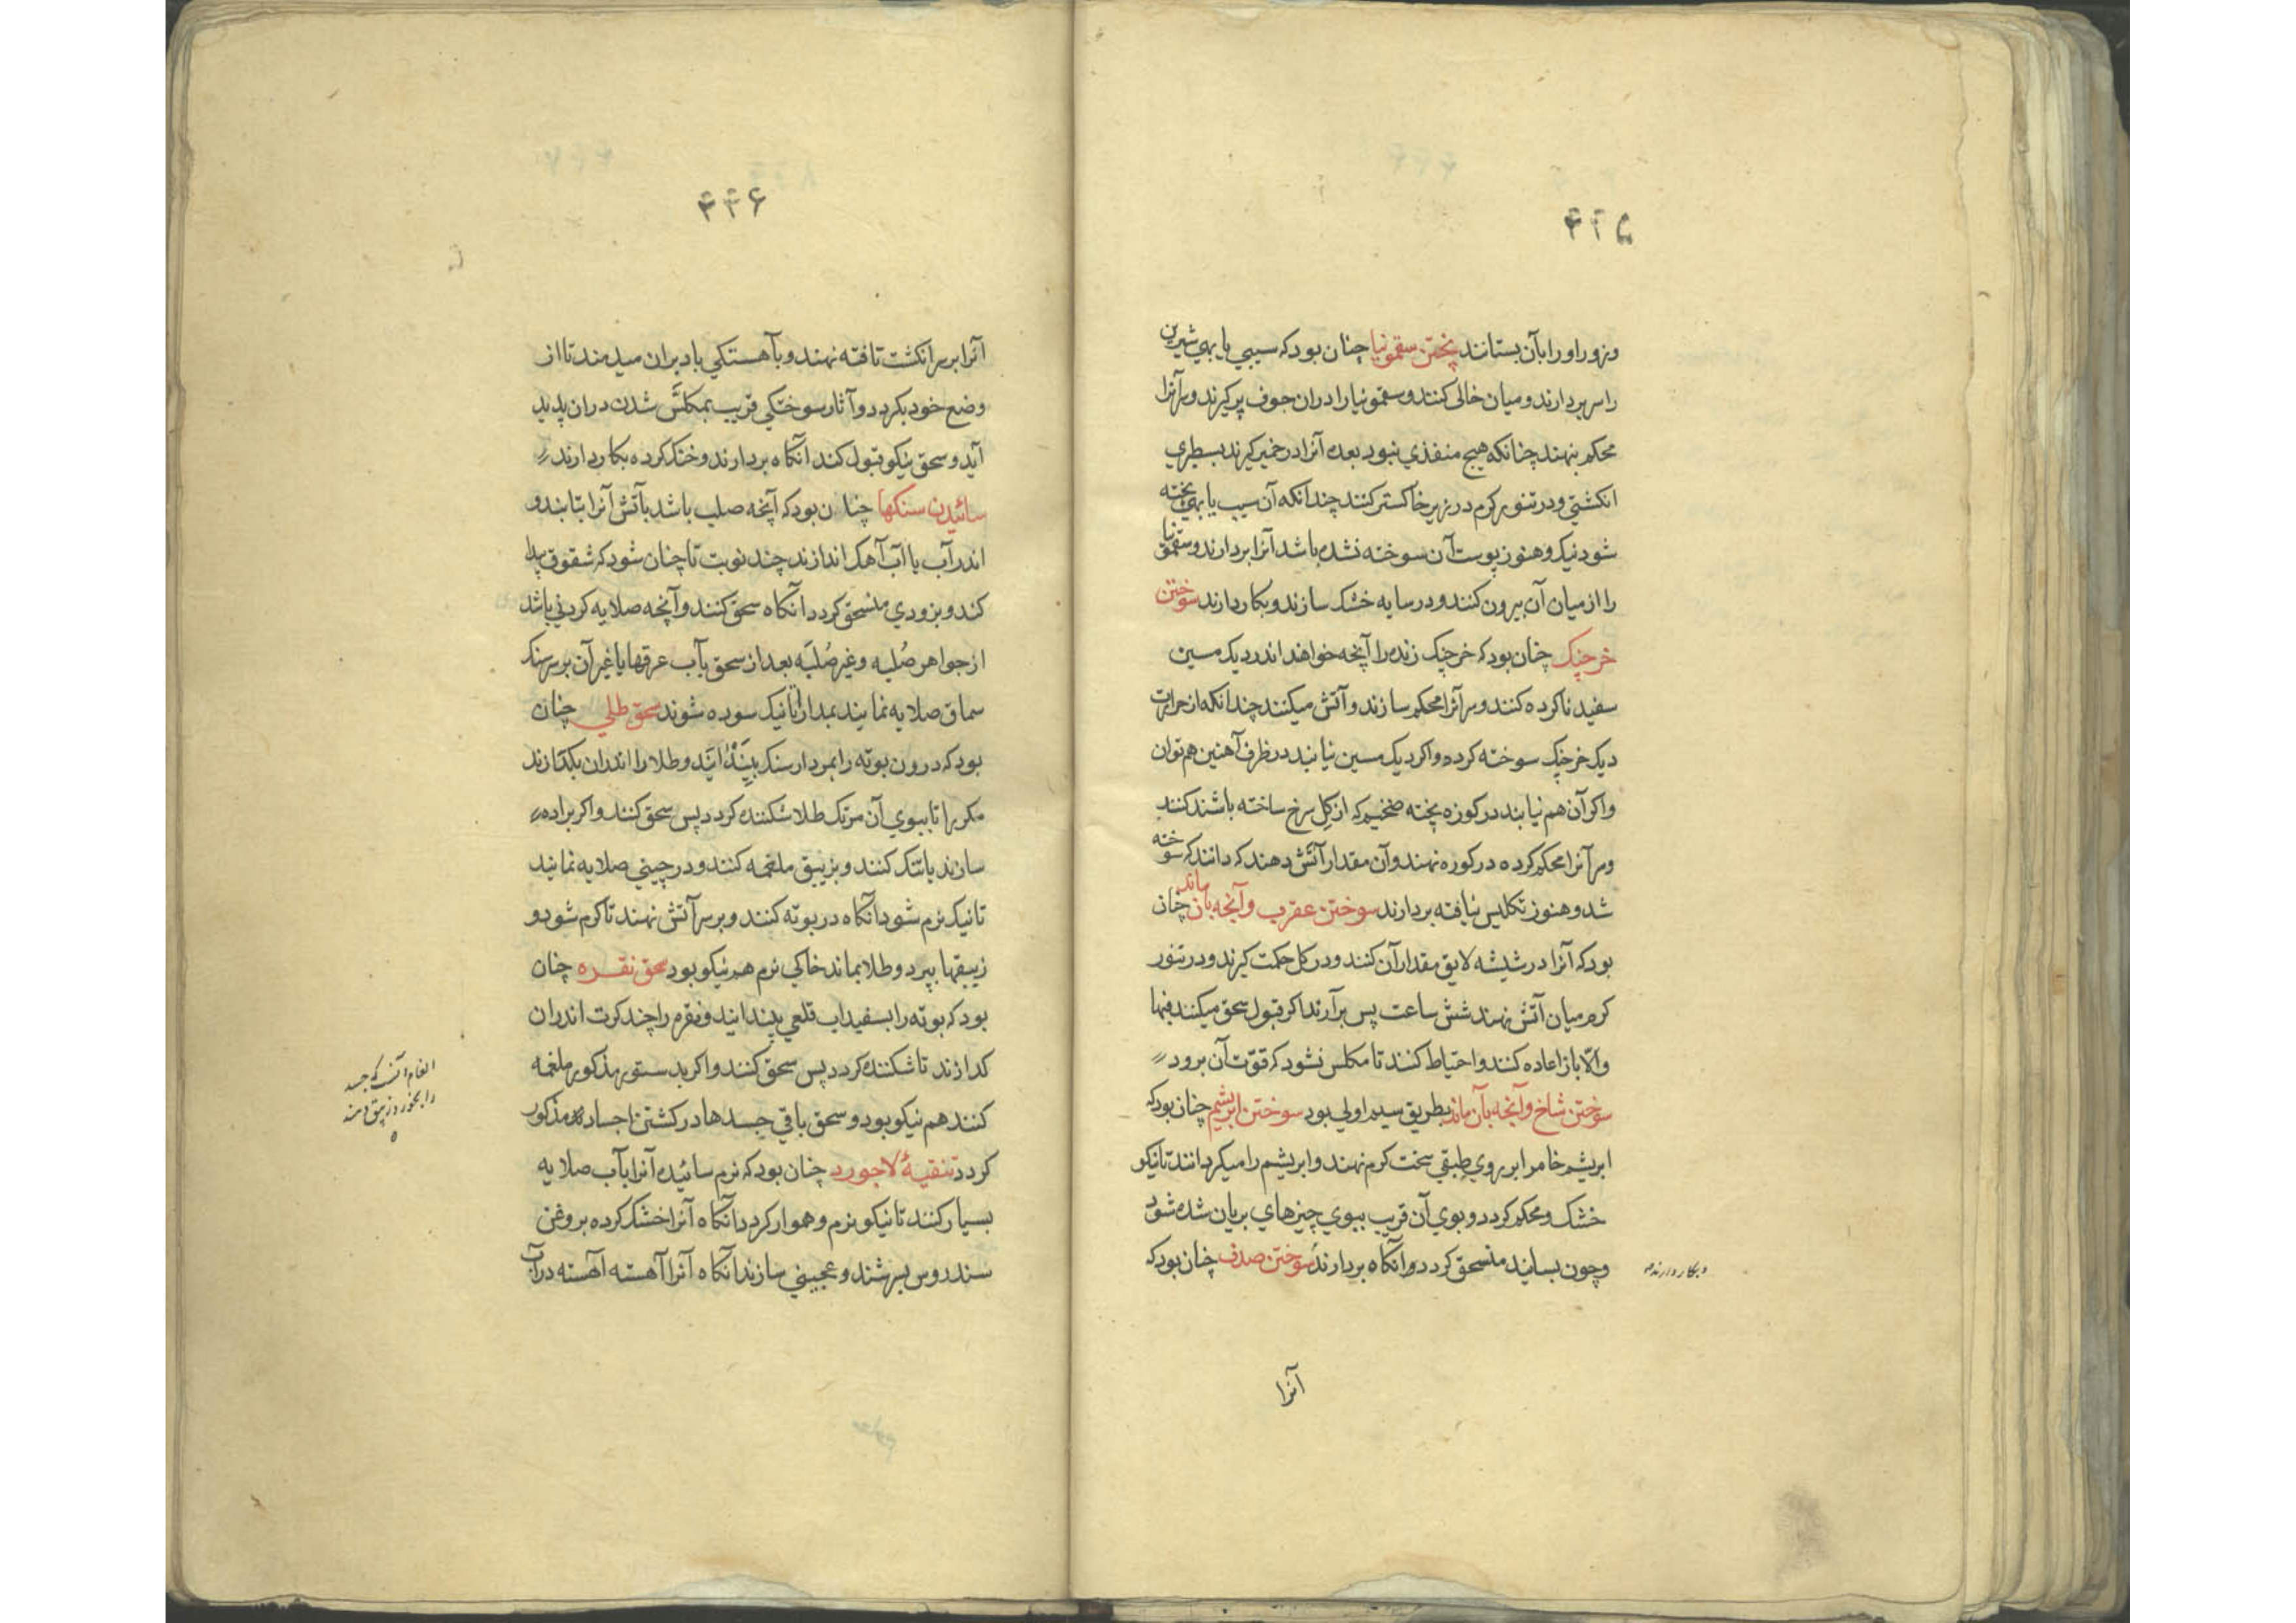 ۴۴۵
وزور او را بآن بستانند پختن سقمونیا چنان بود که سیبی یا بهی شیرین
را سر بردارند و میان خالی کنند و سقمونیا را در ان جوف پر کیرند و سر آنرا
محکم بنهند چنانکه هیچ منفذی نبود بعده آنرا در خمیر کیرند بسطبری
انکشتی و در تنور کرم در زیر خاکستر کنند چندانکه آن سیب یا بهی پخته
شود نیک و هنوز پوست آن سوخته نشده باشد آنرا بردارند و سقمونیا
را از میان آن بیرون کنند و در سایه خشک سازند و بکار دارند سوختن
خرچنک چنان بود که خرچنک زنده را آنچه خواهند اندر دیک مسین
سفید ناکرده کنند و سر آنرا محکم سازند و آتش میکنند چندانکه از حرارت
دیک خرچنک سوخته کردد و اکر دیک مسین نیابند در ظرف آهنین هم توان
و اکر آن هم نیابند در کوزه پخته ضخیم که از کل سرخ ساخته باشند کنند
و سر آنرا محکم کرده در کوره نهند و آن مقدار آتش دهند که دانند که سوخته
شد و هنوز تکلیس نیافته بردارند سوختن عقرب و آنچه بان ماند چنان
بود که آنرا در شیشه لایق مقدار آن کنند و در کل حکمت کیرند و در تنور
کرم میان آتش نهند شش ساعت پس برآرند اکر قبول سحق میکنند فبها
و الّا باز اعاده کنند و احتیاط کنند تا مکلس نشود که قوّت آن برود
سوختن شاخ و آنچه بآن ماند بطریق سیم اولی بود سوختن ابریشم چنان بود که
ابریشم خام را بر روی طبقی سخت کرم نهند و ابریشم را میکردانند تا نیکو
خشک و محکم کردد و بوی آن قریب ببوی چیزهای بریان شده شود
و چون بسایند منسحق کردد و آنکاه بردارند سوختن صدف چنان بود که
و بکار دارند
آنرا
۴۴۶
آنرا بر سر انکشت تافته نهند و بآهستکی باد بران میدمند تا از
وضع خود بکردد و آثار سوختکی قریب بمکلّس شدن در ان پدید
آید و سحق نیکو قبول کند آنکاه بردارند و خنک کرده بکار دارند
سائیدن سنکها چنان بود که آنچه صلب باشد بآتش آنرا بتابند و
اندر آب یا آب آهک اندازند چند نوبت تا چنان شود که شقوق پیدا
کند و بزودی منسحق کردد آنکاه سحق کنند و آنچه صلایه کردنی باشد
از جواهر صُلبه و غیر صُلبَه بعد از سحق بآب عرقها یا غیر آن بر سر سنک
سماق صلایه نمایند بمدارا تا نیک سوده شوند سحق طلی چنان
بود که درون بوته را بمردارسنک بیَندایَند و طلا را اندران بکدازند
مکرر تا ببوی آن مرتک طلا شکننده کردد پس سحق کنند و اکر براده
سازند یا تنک کنند و بزیبق ملغمه کنند و در چینی صلایه نمایند
تا نیک نرم شود آنکاه در بوته کنند و بر سر آتش نهند تا کرم شود و
زیبقها بپرد و طلا بماند خاکی نرم هم نیکو بود سحق نقره چنان
بود که بوته را بسفیداب قلعی بیندایند و نقره را چند کرت اندران
کدازند تا شکننده کردد پس سحق کنند و اکر بدستور مذکور ملغمه
کنند هم نیکو بود و سحق باقی جسدها در کشتن اجساد مذکور
کردد تنقیهٔ لاجورد چنان بود که نرم سائیده آنرا بآب صلایه
بسیار کنند تا نیکو نرم و هموار کردد آنکاه آنرا خشک کرده بروغن
سندروس بسرشند و عجینی سازند آنکاه آنرا آهسته آهسته در آب
الغام آنست که جسد
را بخورد زیبق دهند